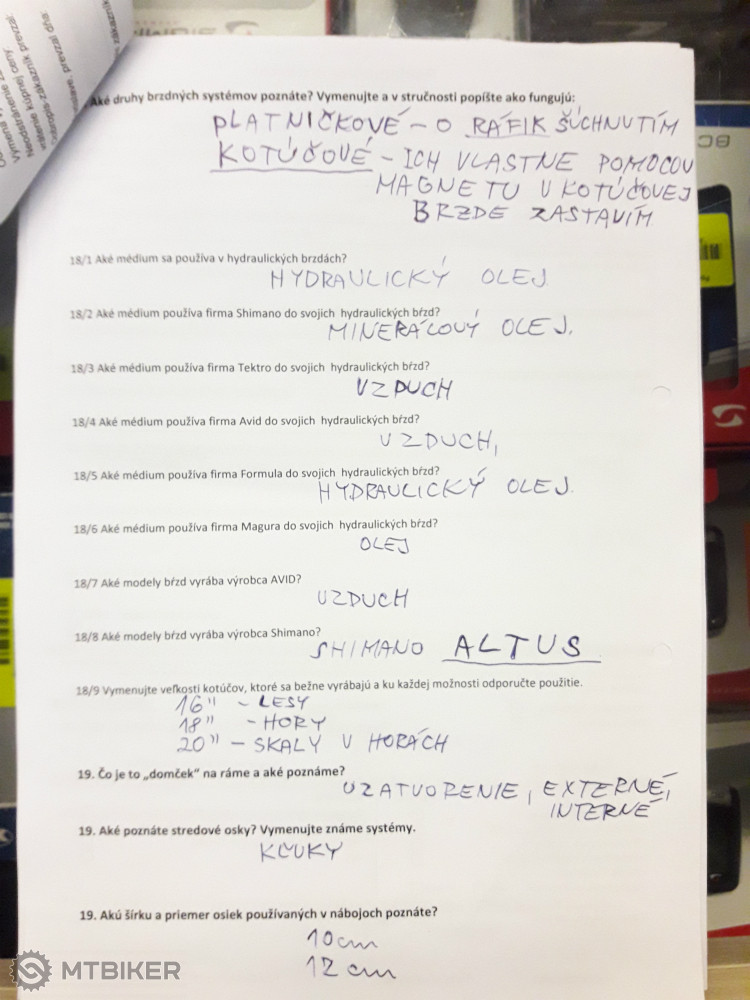 Aké druhy brzdných systémov poznáte? Vymenujte a v stručnosti popíšte ako fungujú:
PLATNIČKOVÉ – O RÁFIK ŠÚCHNUTÍM
KOTÚČOVÉ – ICH VLASTNE POMOCOU
MAGNETU V KOTÚČOVEJ
BRZDE ZASTAVÍM
18/1 Aké médium sa používa v hydraulických brzdách?
HYDRAULICKÝ OLEJ
18/2 Aké médium používa firma Shimano do svojich hydraulických bŕzd?
MINERÁLOVÝ OLEJ.
18/3 Aké médium používa firma Tektro do svojich hydraulických bŕzd?
VZDUCH
18/4 Aké médium používa firma Avid do svojich hydraulických bŕzd?
VZDUCH,
18/5 Aké médium používa firma Formula do svojich hydraulických bŕzd?
HYDRAULICKÝ OLEJ.
18/6 Aké médium používa firma Magura do svojich hydraulických bŕzd?
OLEJ
18/7 Aké modely bŕzd vyrába výrobca AVID?
VZDUCH
18/8 Aké modely bŕzd vyrába výrobca Shimano?
SHIMANO ALTUS
18/9 Vymenujte veľkosti kotúčov, ktoré sa bežne vyrábajú a ku každej možnosti odporučte použitie.
16" – LESY
18" – HORY
20" – SKALY V HORÁCH
19. Čo je to „domček“ na ráme a aké poznáme?
UZATVORENIE, EXTERNÉ,
INTERNÉ
19. Aké poznáte stredové osky? Vymenujte známe systémy.
KĽUKY
19. Akú šírku a priemer osiek používaných v nábojoch poznáte?
10cm
12cm
MTBIKER